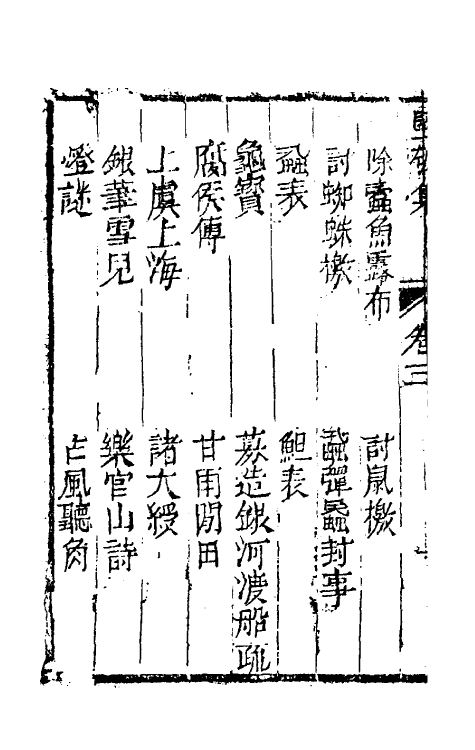 堅瓠集 卷三
除蠹魚露布 討鼠檄
討蜘蛛檄 彈蝨封事
蝨表 䱇表
龜寶 募造銀河渡船疏
腐侯傳 甘雨閒田
上虞上海 諸大綬
銀筆雪兒 樂官山詩
燈謎 占風聽角